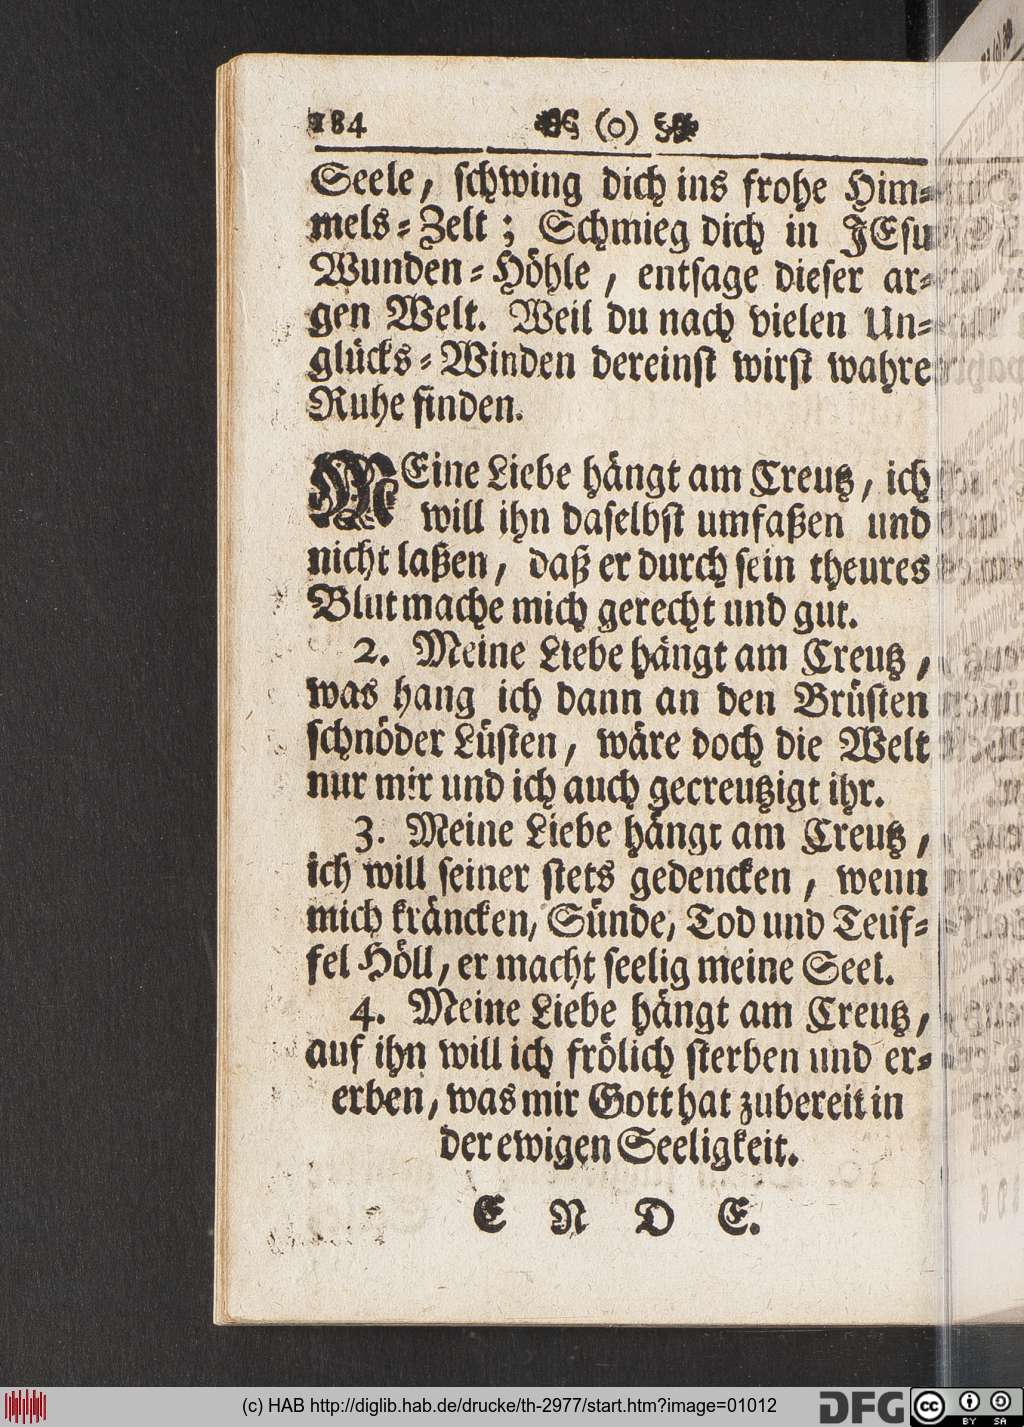 184 (o)
Seele, schwing dich ins frohe Him-
mels-Zelt; Schmieg dich in JEsu
Wunden-Höhle, entsage dieser ar-
gen Welt. Weil du nach vielen Un-
glücks-Winden dereinst wirst wahre
Ruhe finden.
MEine Liebe hängt am Creutz, ich
will ihn daselbst umfaßen und
nicht laßen, daß er durch sein theures
Blut mache mich gerecht und gut.
2. Meine Liebe hängt am Creutz,
was hang ich dann an den Brüsten
schnöder Lüsten, wäre doch die Welt
nur mir und ich auch gecreutzigt ihr.
3. Meine Liebe hängt am Creutz,
ich will seiner stets gedencken, wenn
mich kräncken, Sünde, Tod und Teuf-
fel Höll, er macht seelig meine Seel.
4. Meine Liebe hängt am Creutz,
auf ihn will ich frölich sterben und er-
erben, was mir Gott hat zubereit in
der ewigen Seeligkeit.
E N D E.
(c) HAB http://diglib.hab.de/drucke/th-2977/start.htm?image=01012
DFG
cc BY SA